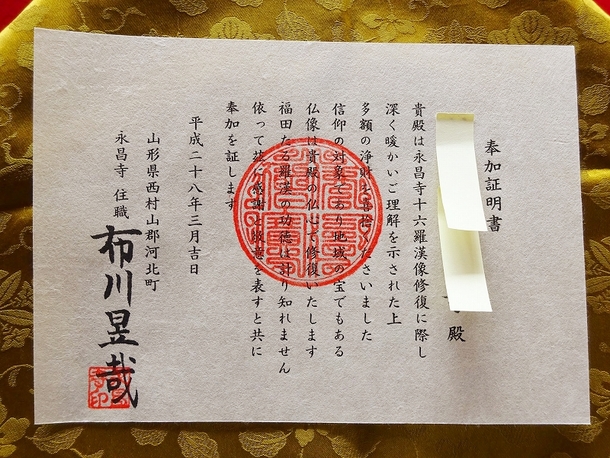 奉加証明書
殿
貴殿は永昌寺十六羅漢像修復に際し
深く暖かいご理解を示された上
多額の浄財を喜捨くださいました
信仰の対象であり地域の宝でもある
仏像は貴殿の仏心で修復いたします
福田たる羅漢の功徳は計り知れません
依って茲に感謝と敬意を表すと共に
奉加を証します
平成二十八年三月吉日
山形県西村山郡河北町
永昌寺 住職
布川昱哉